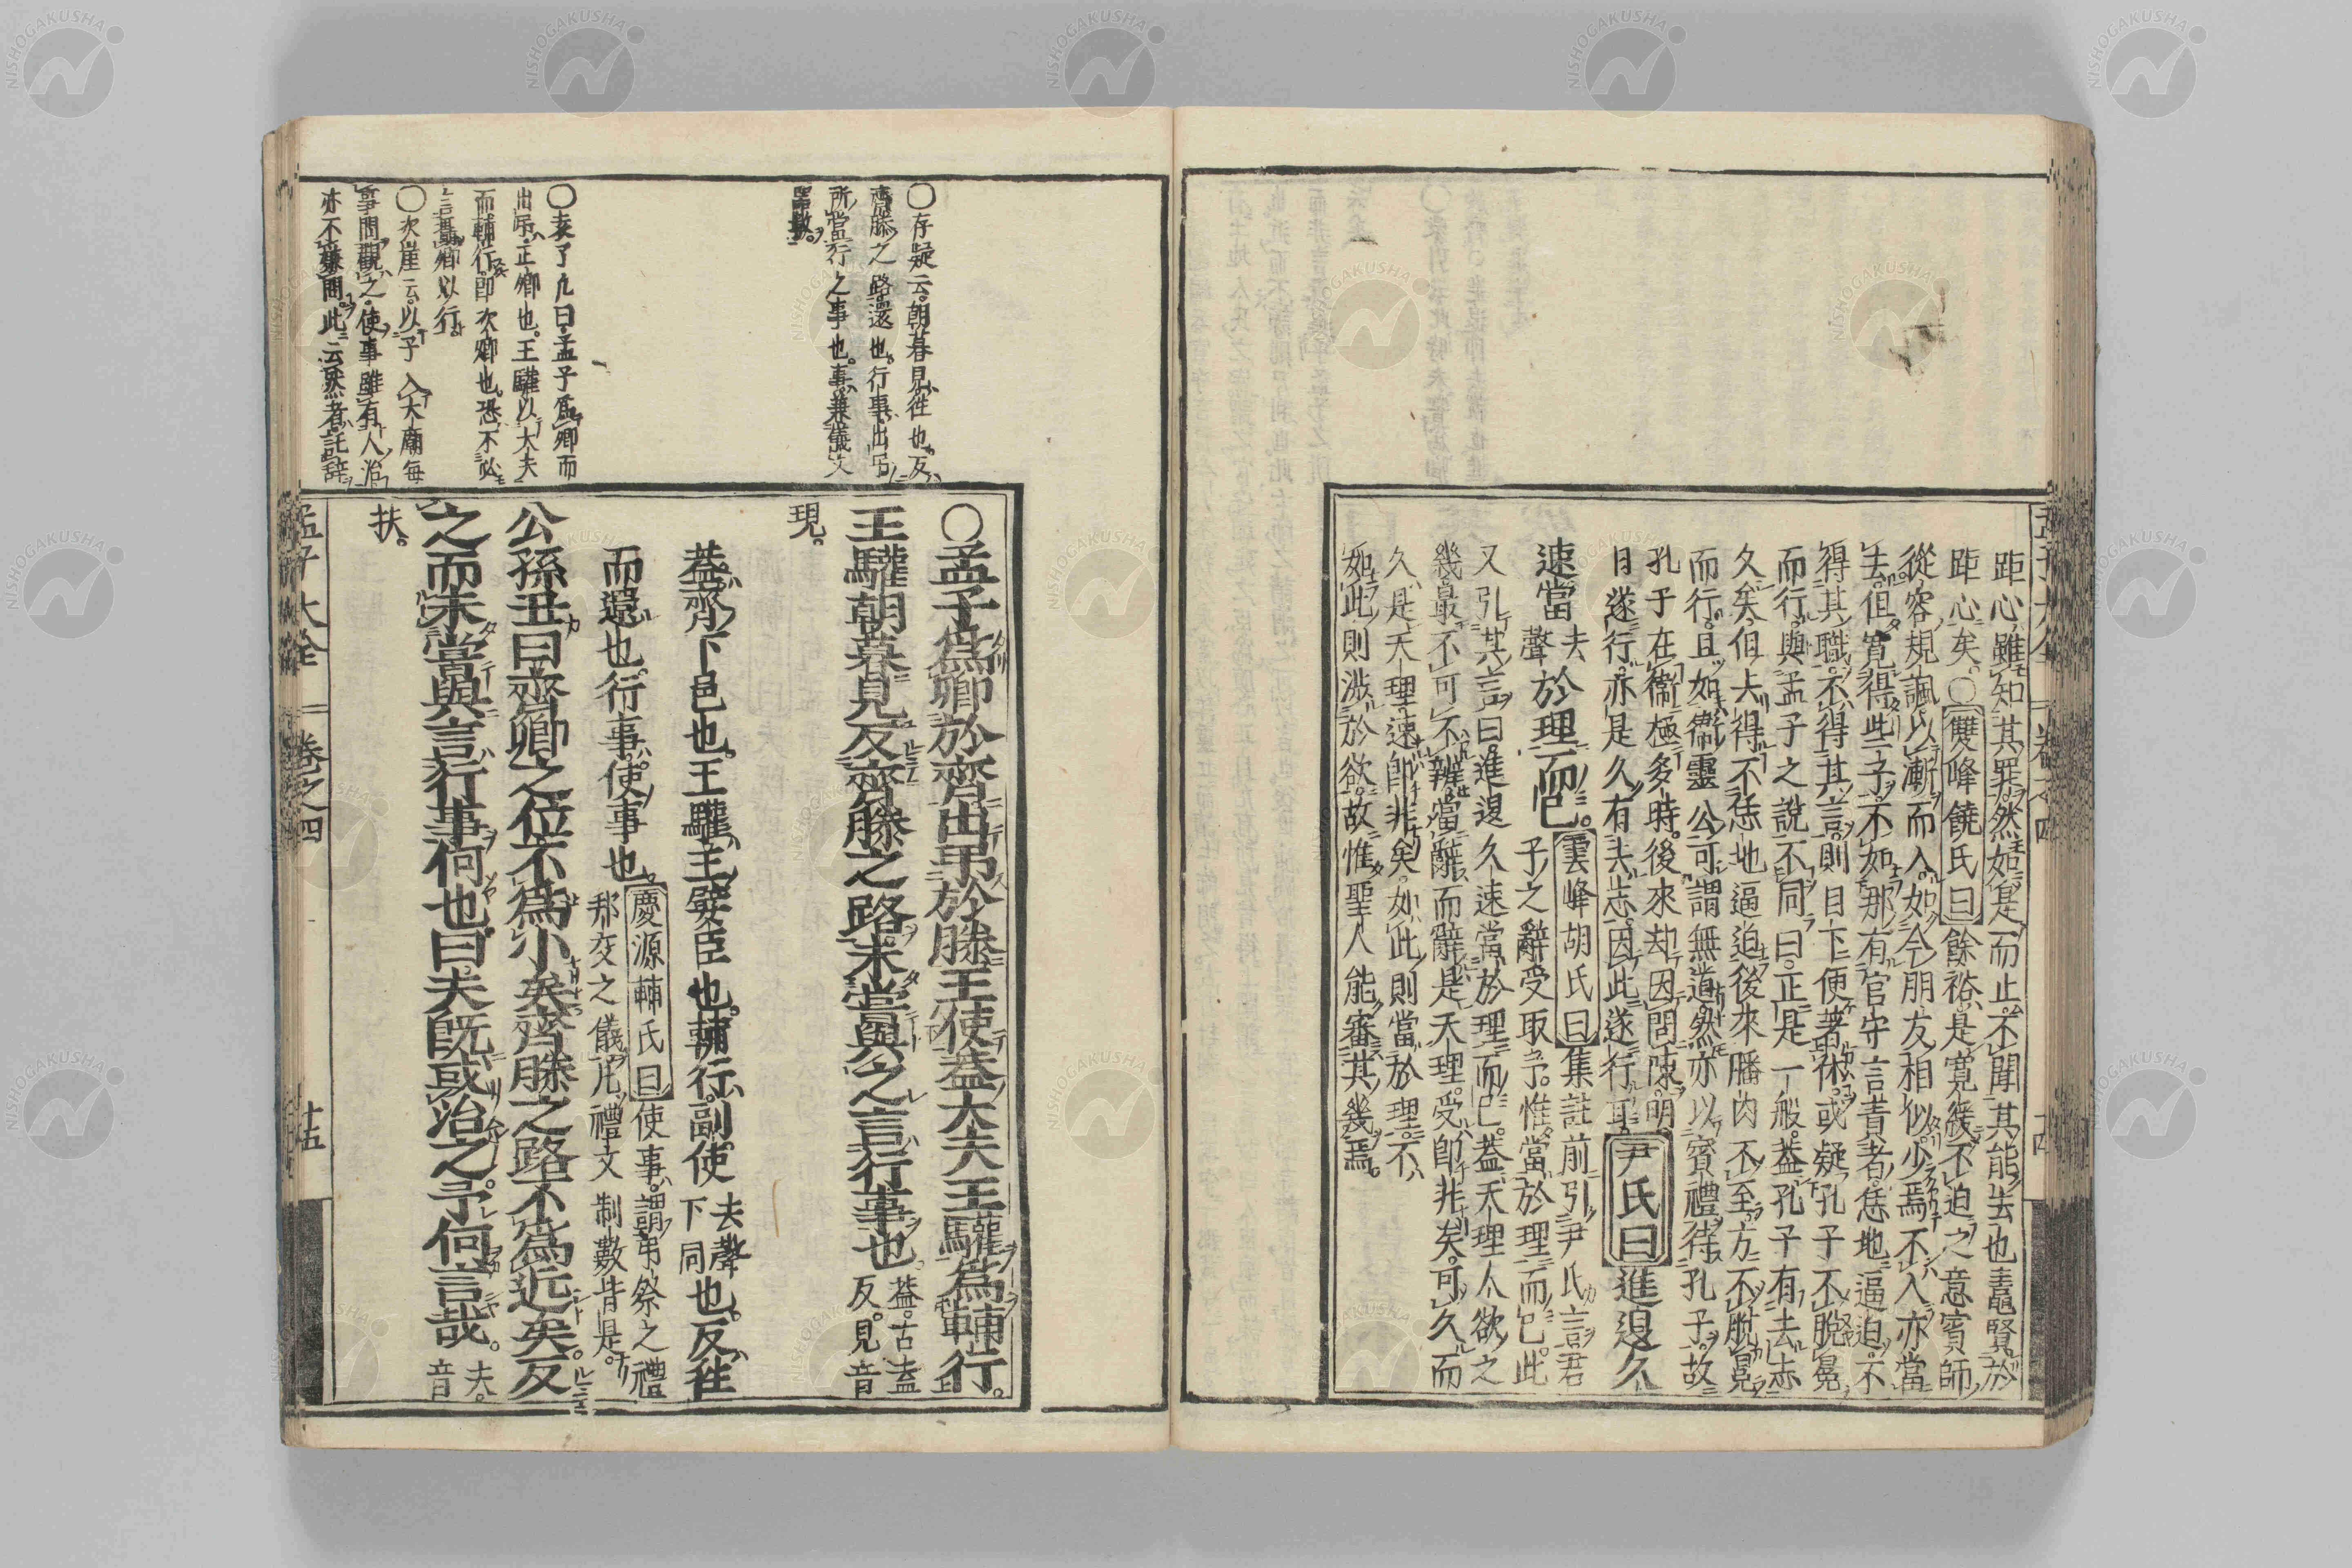 距心雖知其罪然如是而止不聞其能去也蚳鼃賢於
距心矣○雙峰饒氏曰餘裕是寛緩不迫之意賓師
從容規諷以漸而入如今朋友相似少焉不入亦當
去但寛得些子不如那有官守言責者恁地逼迫不
得其職不得其言則目下便著休或疑孔子不脫冕
而行與孟子之說不同曰正是一般葢孔子有去志
久矣但去得不恁地逼迫後來膰肉不至方不脫冕
而行且如衞靈公可謂無道然亦以賓禮待孔子故
孔子在衞極多時後來却因問陳明
日遂行亦是久有去志因此遂行耳尹氏曰進退久
速當去聲於理而已雲峰胡氏曰集註前引尹氏言君
子之辭受取予惟當於理而已此
又引其言曰進退久速當於理而已葢天理人欲之
幾最不可不辨當辭而辭是天理受即非矣可久而
久是天理速即非矣如此則當於理不
如此則涉於欲故惟聖人能審其幾焉
孟子大全 卷之四 十四
○存疑云朝暮見往也反
齊滕之路還也行事出弔
所當行之事也事兼儀文
器數
○袁了凡曰孟子爲卿而
出弔正卿也王驩以大夫
而輔行即次卿也恐不必
言攝卿以行
○次崖云以子入大廟每
事問觀之使事雖有人治
亦不嫌問此云然者託辭
○孟子爲卿於齊出弔於滕王使葢大夫王驩爲輔行
王驩朝暮見反齊滕之路未嘗與之言行事也葢古盍
反見音
現
葢齊下邑也王驩王嬖臣也輔行副使去聲下同也反往
而還也行事使事也慶源輔氏曰使事謂弔祭之禮
邦交之儀凡禮文制數皆是
公孫丑曰齊卿之位不爲小矣齊滕之路不爲近矣反
之而未嘗與言行事何也曰夫旣或治之予何言哉夫音
扶
孟子大全 卷之四 十五
NISHOGAKUSHA